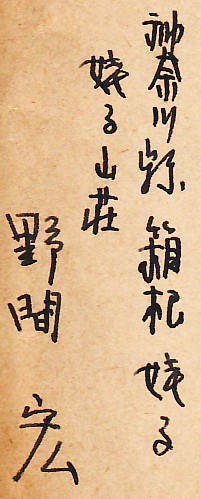 神奈川縣 箱根 姥子
姥子山荘
野間 宏